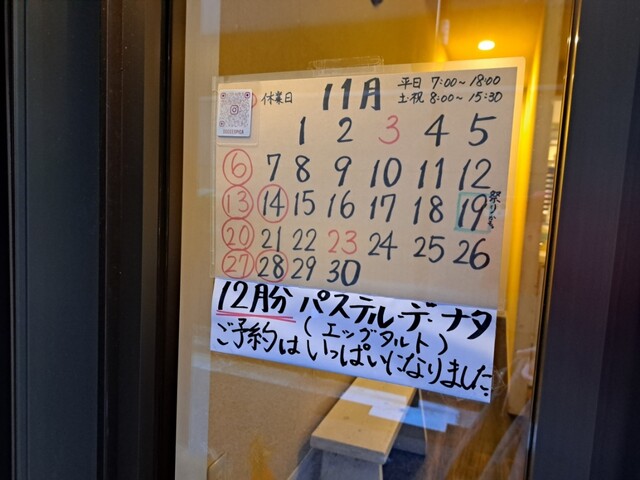 休業日 11月 平日 7:00~18:00
土·祝 8:00~15:30
1 2 3 4 5
6 7 8 9 10 11 12
13 14 15 16 17 18 19
20 21 22 23 24 25 26
27 28 29 30
12月分 パステル・デ・ナタ
(エッグタルト)
ご予約はいっぱいになりました。